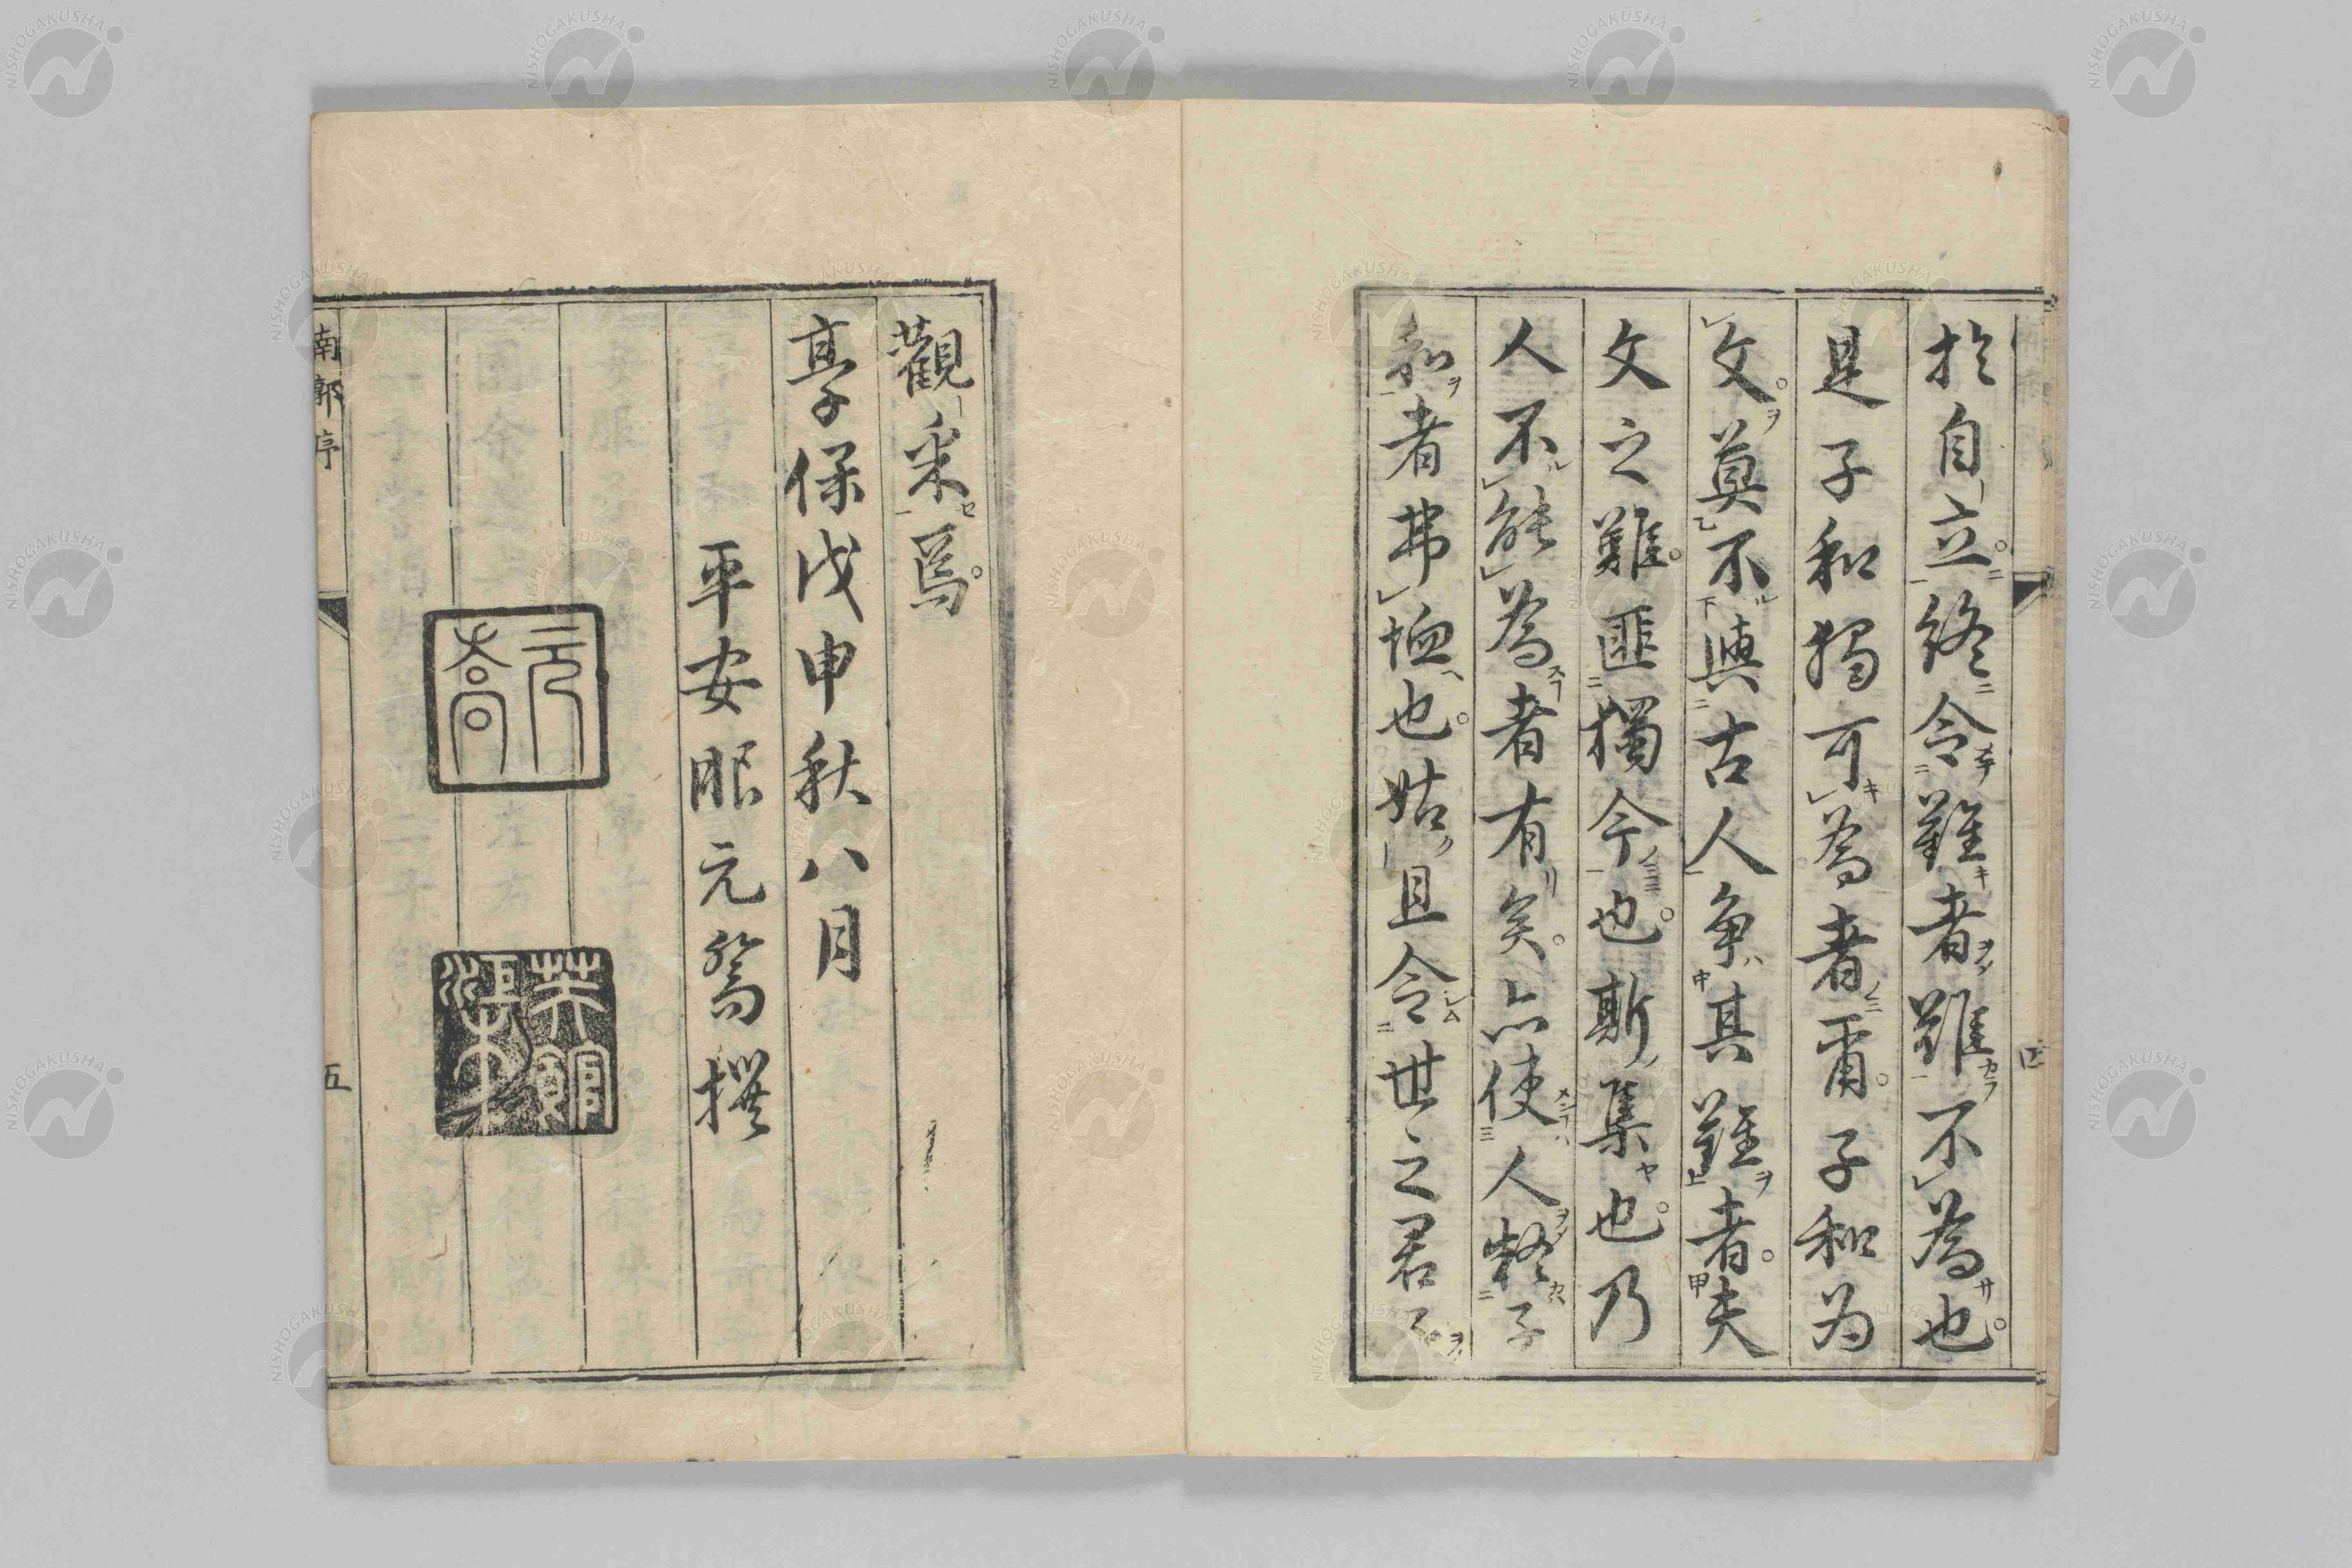 於自立終令難者難不為也
是子和獨可為者甭子和为
文莫不與古人争其難者夫
文之難匪獨今也斯集也乃
人不能為者有矣亦使人疑子
和者弗恤也姑且令世之君子
觀采焉
享保戊申秋八月
平安服元喬撰
元喬
芙蕖館
南郭序
五
NISHOGAKUSHA